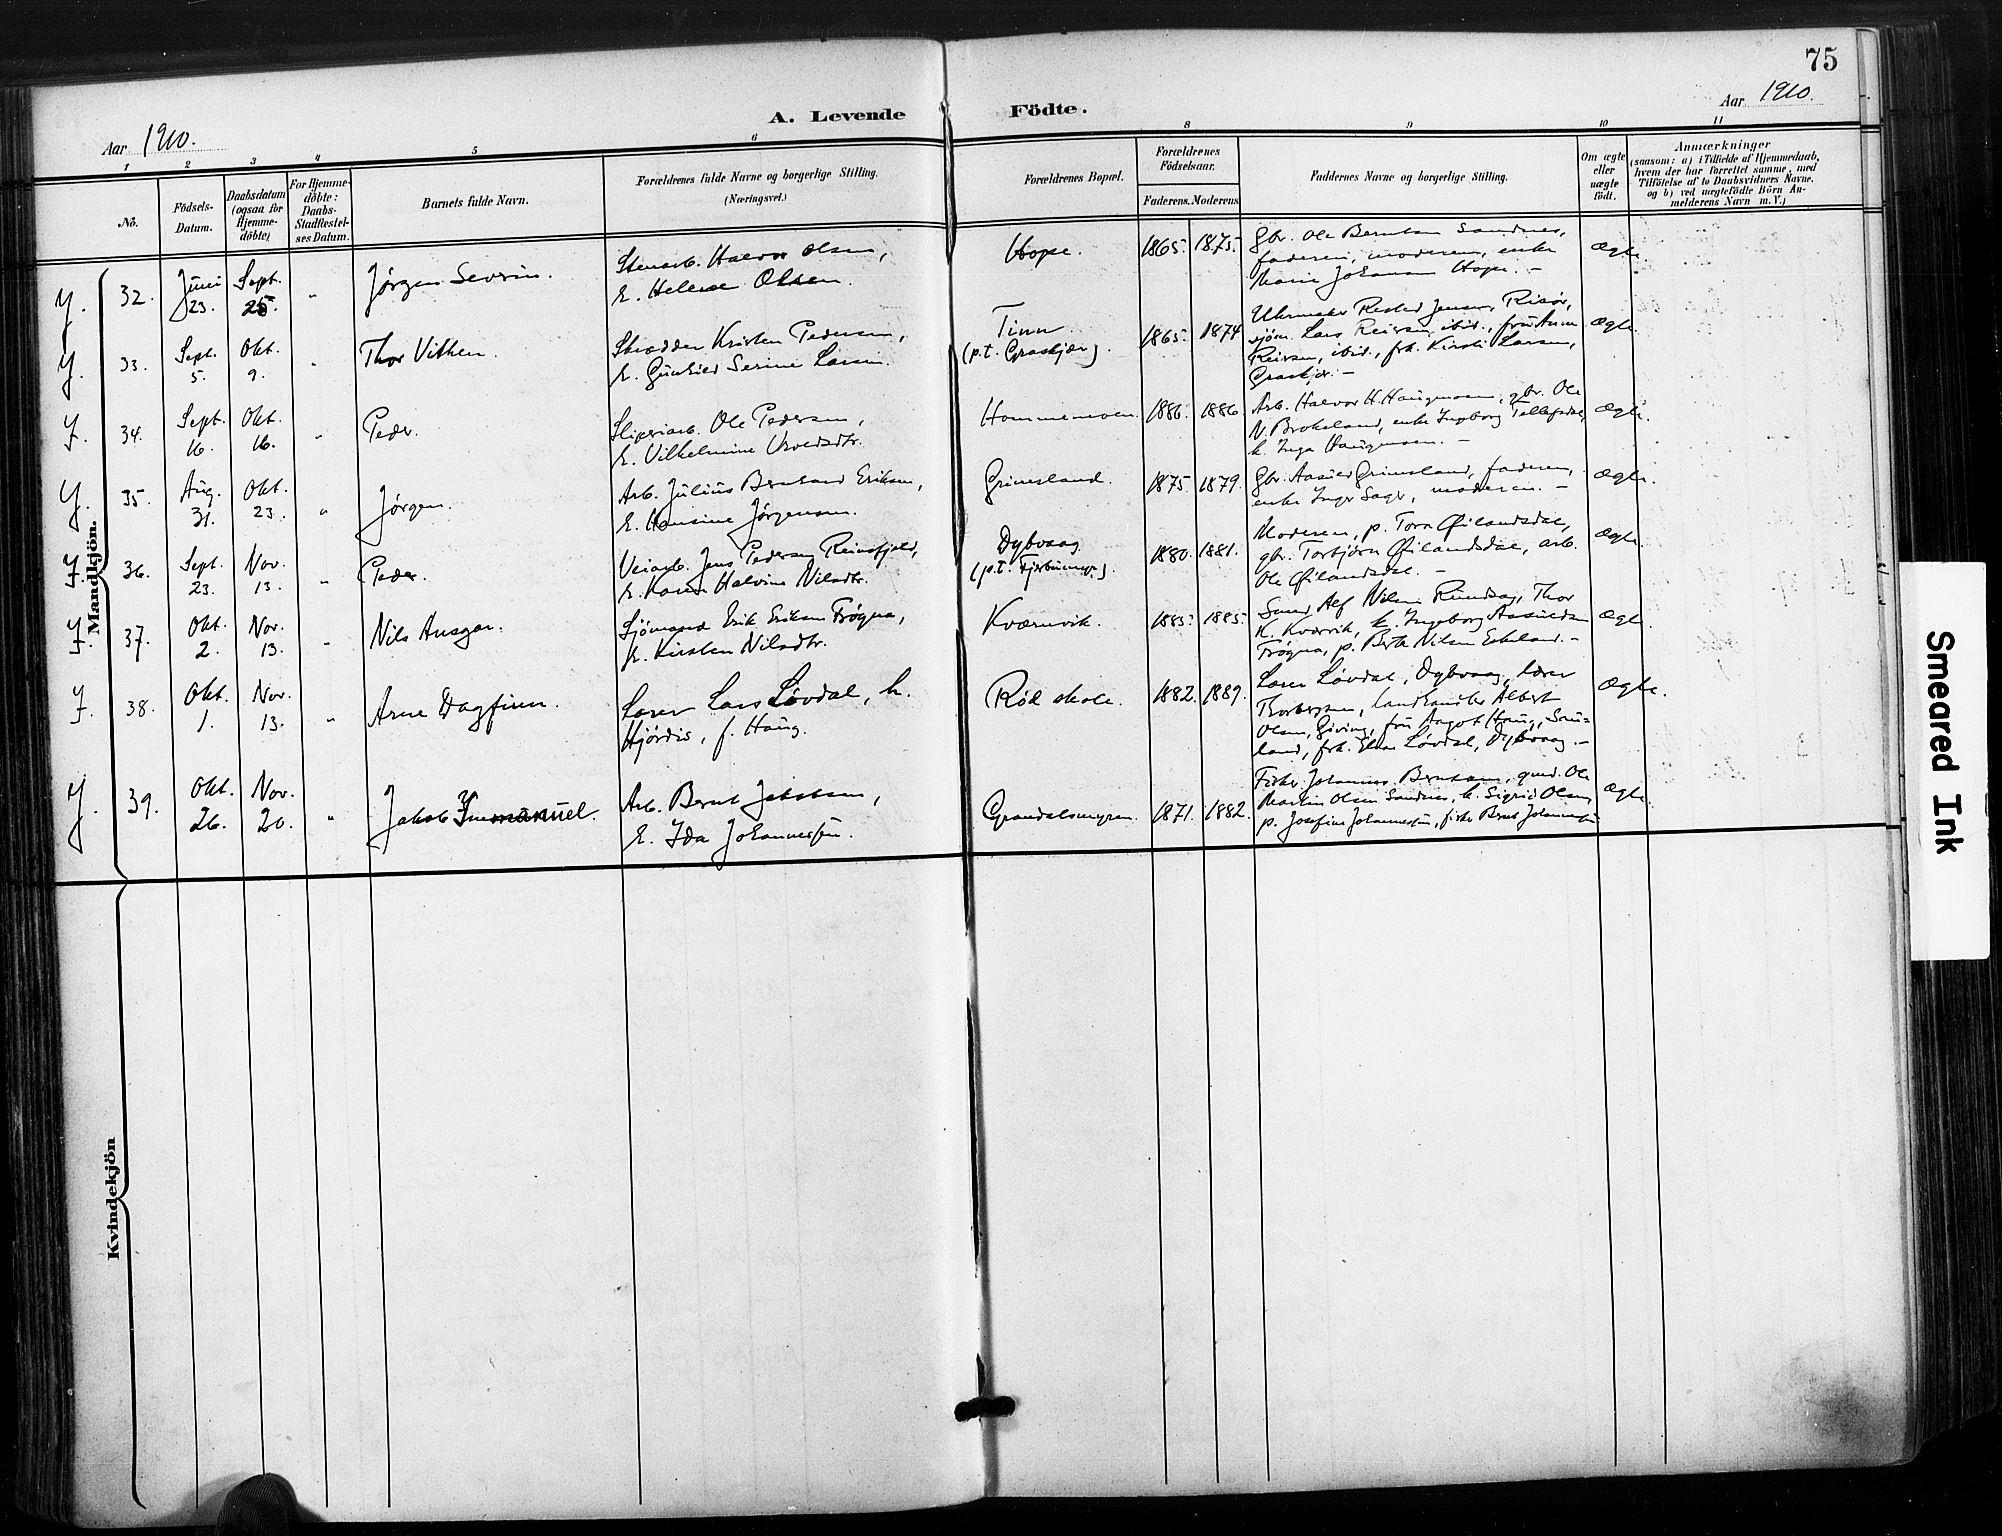 75
Aar 1910.
A. Levende Födte.
Aar 1910.
1
2
3
4
5
6
8
9
10
11
No.
Födsels-
Datum.
Daabsdatum
(ogsaa for
Hjemme-
döbte)
For Hjemme-
döbte:
Daabs-
Stadfæstel-
ses Datum.
Barnets fulde Navn.
Forældrenes fulde Navne og borgerlige Stilling.
(Næringsvei.)
Forældrenes Bopæl.
Forældrenes
Födselsaar.
Faderens. Moderens.
Faddernes Navne og borgerlige Stilling.
Om ægte
eller
uægte
födt.
Anmærkninger
(saasom: a) i Tilfælde af Hjemmedaab,
hvem der har forrettet samme, med
Tilföielse af to Daabsvidners Navne.
og b) ved uægtefödte Börn An-
melderens Navn m. V.)
Mandkjön.
J. 32. Juni 23. Sept. 25. " Jørgen Severin.
Stenarb. Halvor Olsen,
h. Helene Olsen.
Hope. 1865. 1875.
gbr. Ole Berntsen Sandnes,
faderen, moderen, enke
Marie Johansen Hope. –
Ægte.
J. 33. Sept. 5. Okt. 9. " Thor Vithen.
Skrædder Kristen Pedersen,
h. Gunhild Serine Larsen.
Tinn
(p.t. Graskjær). 1865. 1874
Uhrmaker Jensen, Risør,
sjøm. Lars Reiersen, ibid., fru Anna
Reiersen, ibid., frk. Kirsti Larsen,
Graskjær. –
Ægte.
J. 34. Sept. 16. Okt. 16. " Peder.
Sliperiarb. Ole Pedersen,
h. Vilhelmine
Hommemoen. 1886. 1886.
Arb. Halvor H. Haugmoen, gbr. Ole
N. Brokeland, enke Ingborg
k. Inga Haugmoen. –
Ægte.
J. 35. Aug. 31. Okt. 23. " Jørgen.
Arb. Julius Berntsen Eriksen,
h. Hansine Jørgensen.
Grimsland. 1875. 1879.
gbr. Grimsland, faderen,
enke Inger moderen. –
Ægte.
J. 36. Sept. 23. Nov. 13. " Peder.
Veiarb. Jens Pedersen Reinsfjeld,
h. Karen Halvine Nilsdtr.
Dybvaag
1880. 1881.
Moderen, p. Tora Øilandsdal,
gbr. Torbjørn Øilandsdal, arb.
Ole Øilandsdal. –
Ægte.
J. 37. Okt. 2. Nov. 13. " Nils Ansgar.
Sjömand Erik Eriksen Frögna,
h. Kirsten Nilsdtr.
Kværnvik. 1885. 1885.
Alf Nilsen Rundsag, Thor
K. Kværvik, k. Ingeborg
Frögna, p. Berte Nilsen Eskeland. –
Ægte.
J. 38. Okt. 1. Nov. 13. " Arne Dagfinn.
Lærer Lars Løvdal, h.
Hjördis, f. Haug.
Rød skole. 1882. 1889.
Lærer Løvdal, Dybvaag, lærer
Torbergsen, landhandler Albert
Olsen, Giving, fru Aagot Haug, Sau-
land, frk. Løvdal, Dybvaag. –
Ægte.
J. 39. Okt. 26. Nov. 20. " Jakob Immanuel.
Arb. Bernt Jakobsen,
h. Ida Johannesen.
Grandalsmyren. 1871. 1882.
Fisker Johannes Berntsen, Ole
Martin Olsen Sandnes, k. Sigrid Olsen,
p. Josefine Johannessen, fisker Bernt Johannessen
Ægte.
Kvindekjön
Smeared Ink